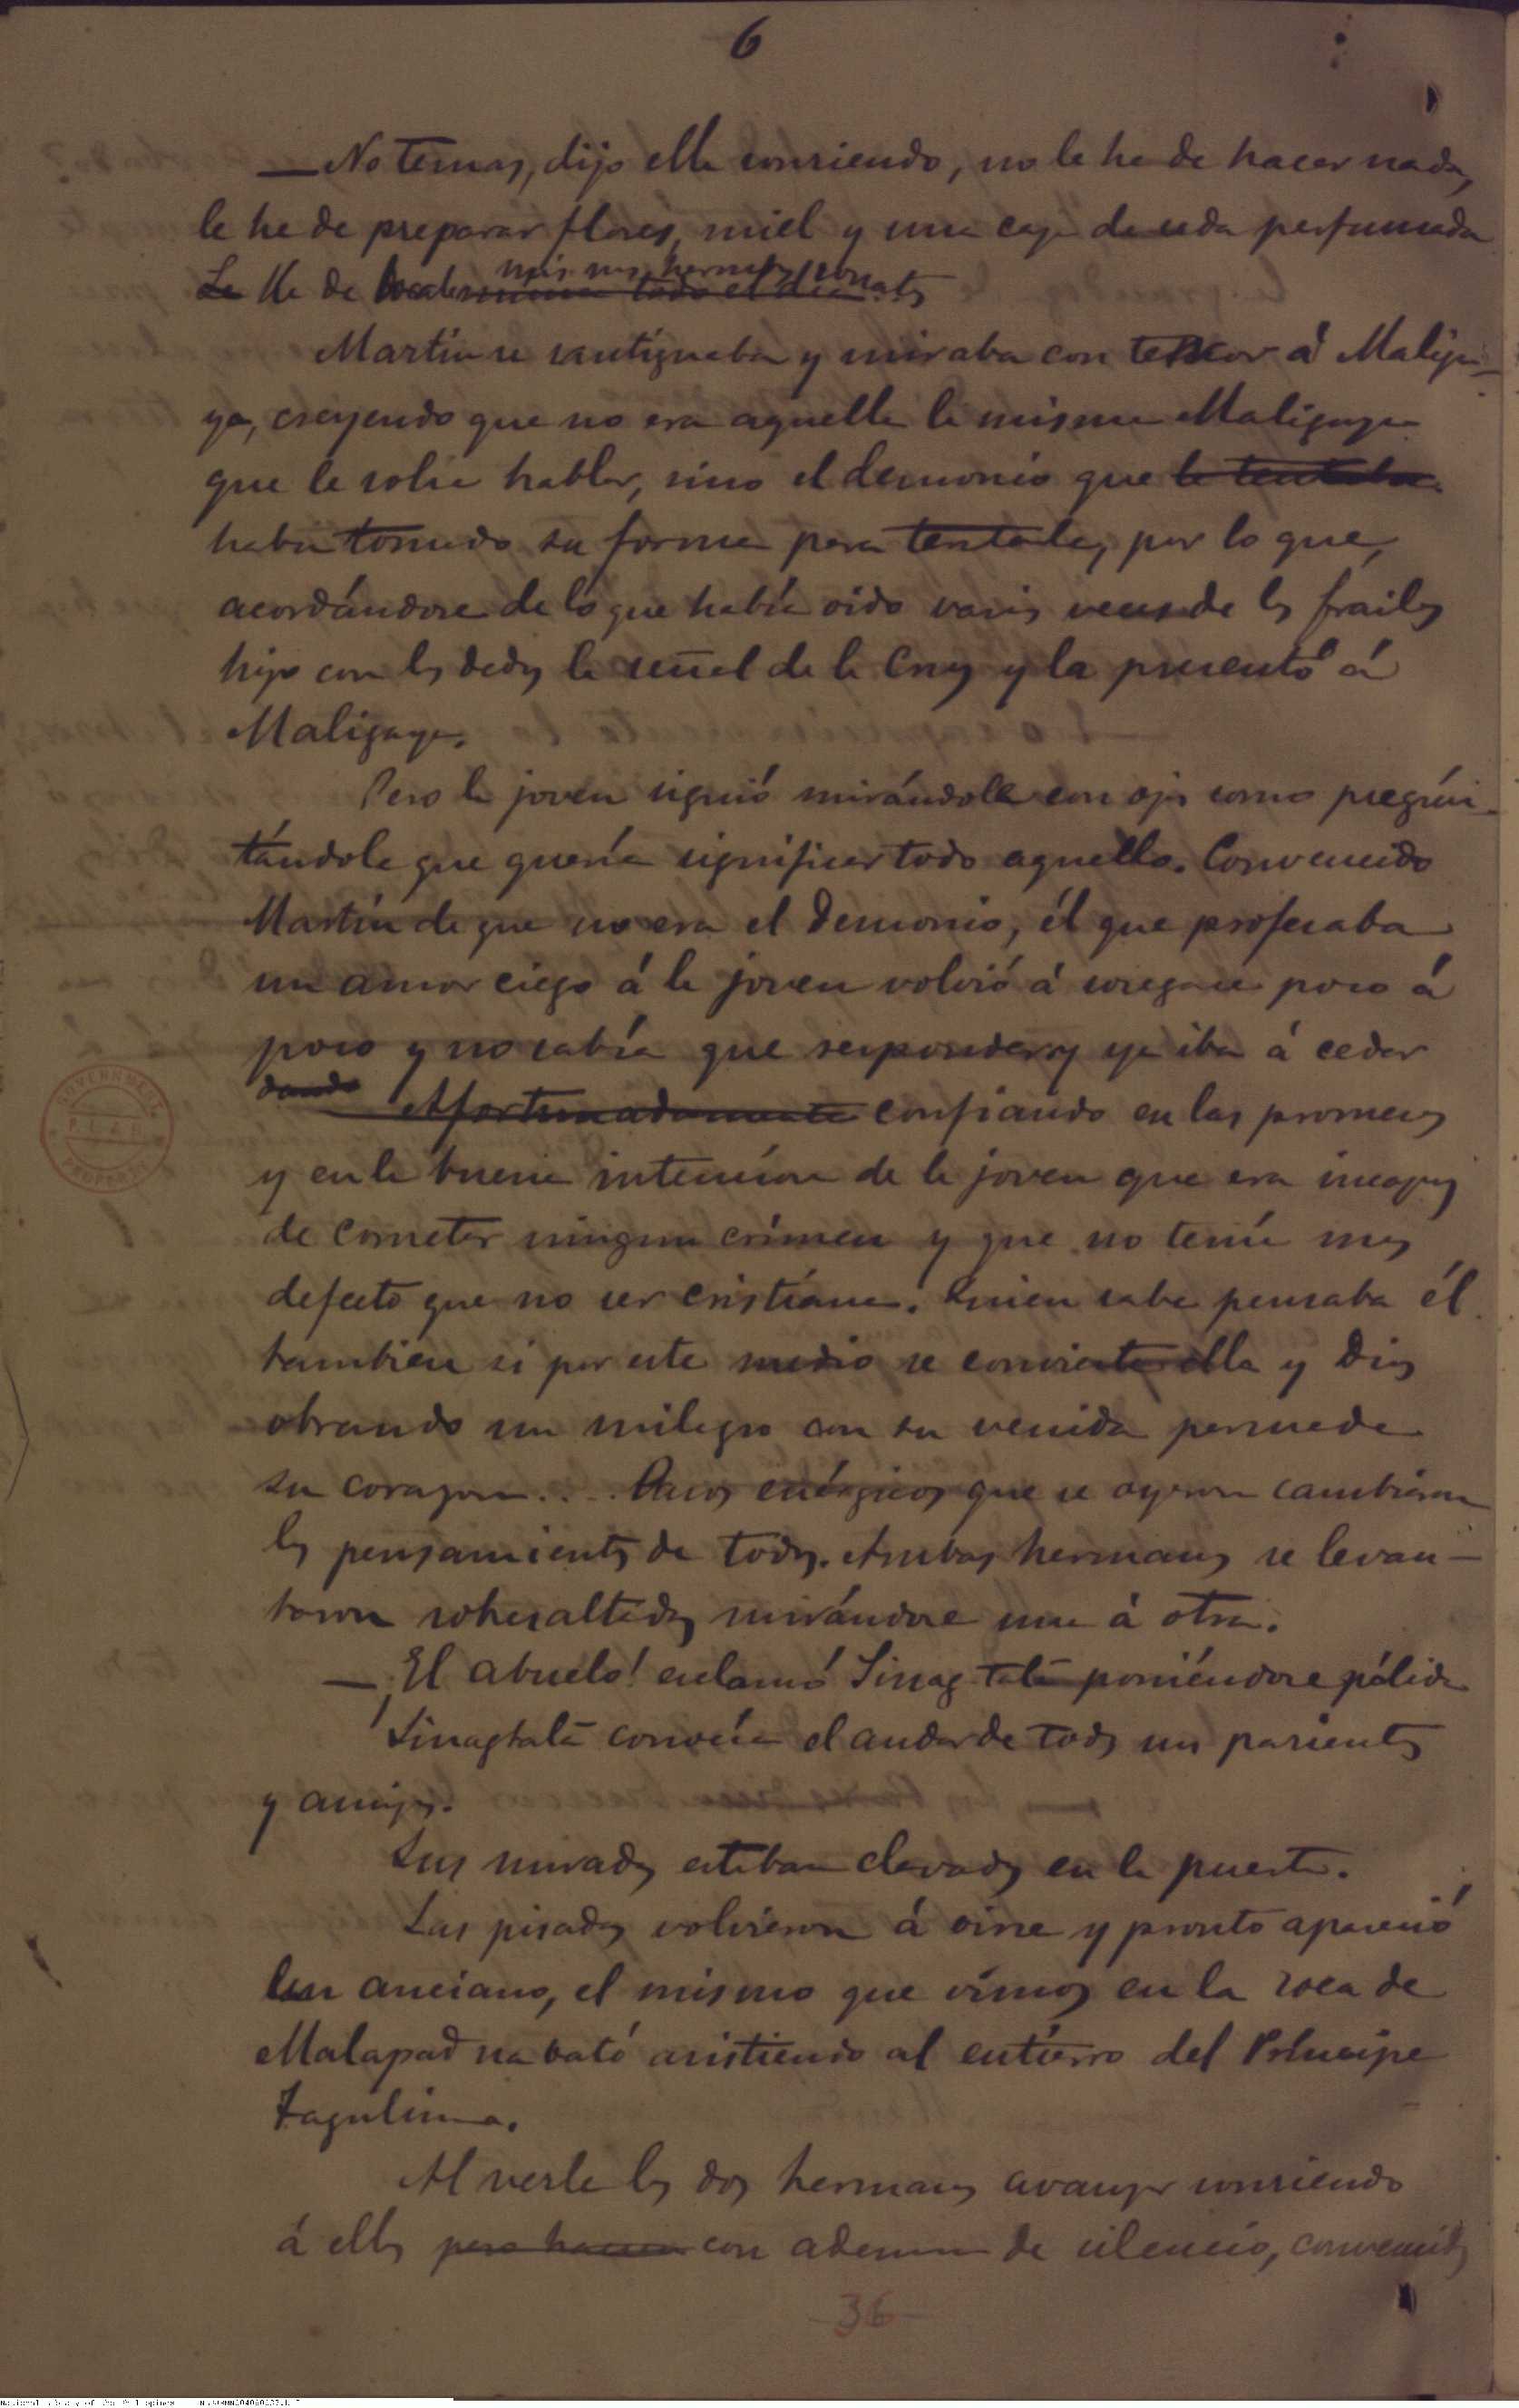 6
— No temas, dijo ella sonriendo, no le he de hacer nada,
le he de preparar flores, miel y una caja de seda perfumada
Le He de mis mas hermosos todo el dia
Martin se santiguaba y miraba con terror á Maliga-
ya, creyendo que no era aquella la misma Maligaya
que le solia hablar, sino el demonio que le tentaba
habia tomado su forma para tentarle, por lo que,
acordándose de lo que había oido varias veces de los frailes
hizo con los dedos la señal de la Cruz y la presentó á
Maligaya.
Pero la joven siguió mirándole con ojos como pregún-
tándole que quería significar todo aquello. Convencido
Martín de que no era el Demonio, él que profesaba
un amor ciego á la joven volvió á sosegarse poco á
poco y no sabía que responder y ya iba á ceder
dando Afortunadamente confiando en las promesas
y en la buena intencion de la joven que era incapaz
de cometer ningun crímen y que no tenía mas
defecto que no ser cristiana. Quien sabe pensaba él
tambien si por este medio se convierte ella y Dios
obrando un milagro con su venida persuade
su corazon.... Pasos enérgicos que se oyeron cambiaron
los pensamientos de todos. Ambos hermanos se levan-
taron sobresaltados mirándose una á otro.
— ¡El abuelo! esclamó Sinag-tala poniéndose pálida
Sinagtala conocía el andar de todos sus parientes
y amigos.
Sus miradas estaban clavadas en la puerta.
Las pisadas volvieron á oirse y pronto apareció
un anciano, el mismo que vimos en la roca de
Malapad na bató asistiendo al entierro del Príncipe
Tagulima.
Al verle los dos hermanos avanzar sonriendo
á ellos pero hacia con ademan de silencio, convencidos
36
GOVERNMENT
PROPERTY